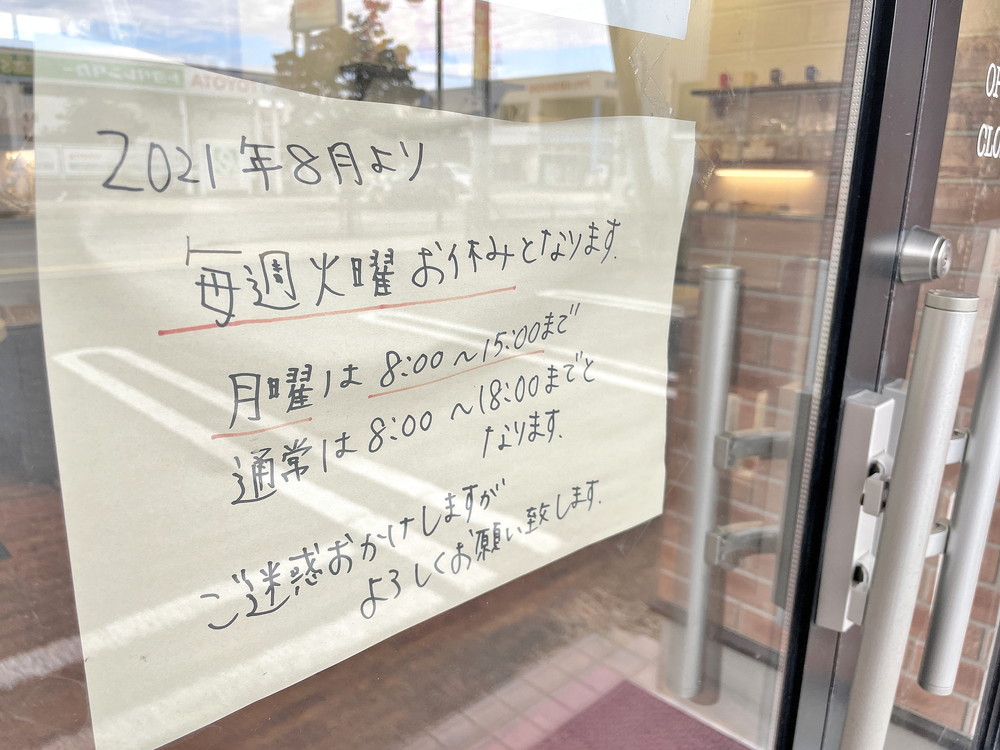 2021年8月より
毎週火曜お休みとなります.
月曜は8:00～15:00まで
通常は8:00～18:00までと
なります.
ご迷惑おかけしますが
よろしくお願い致します.
TOYOTA